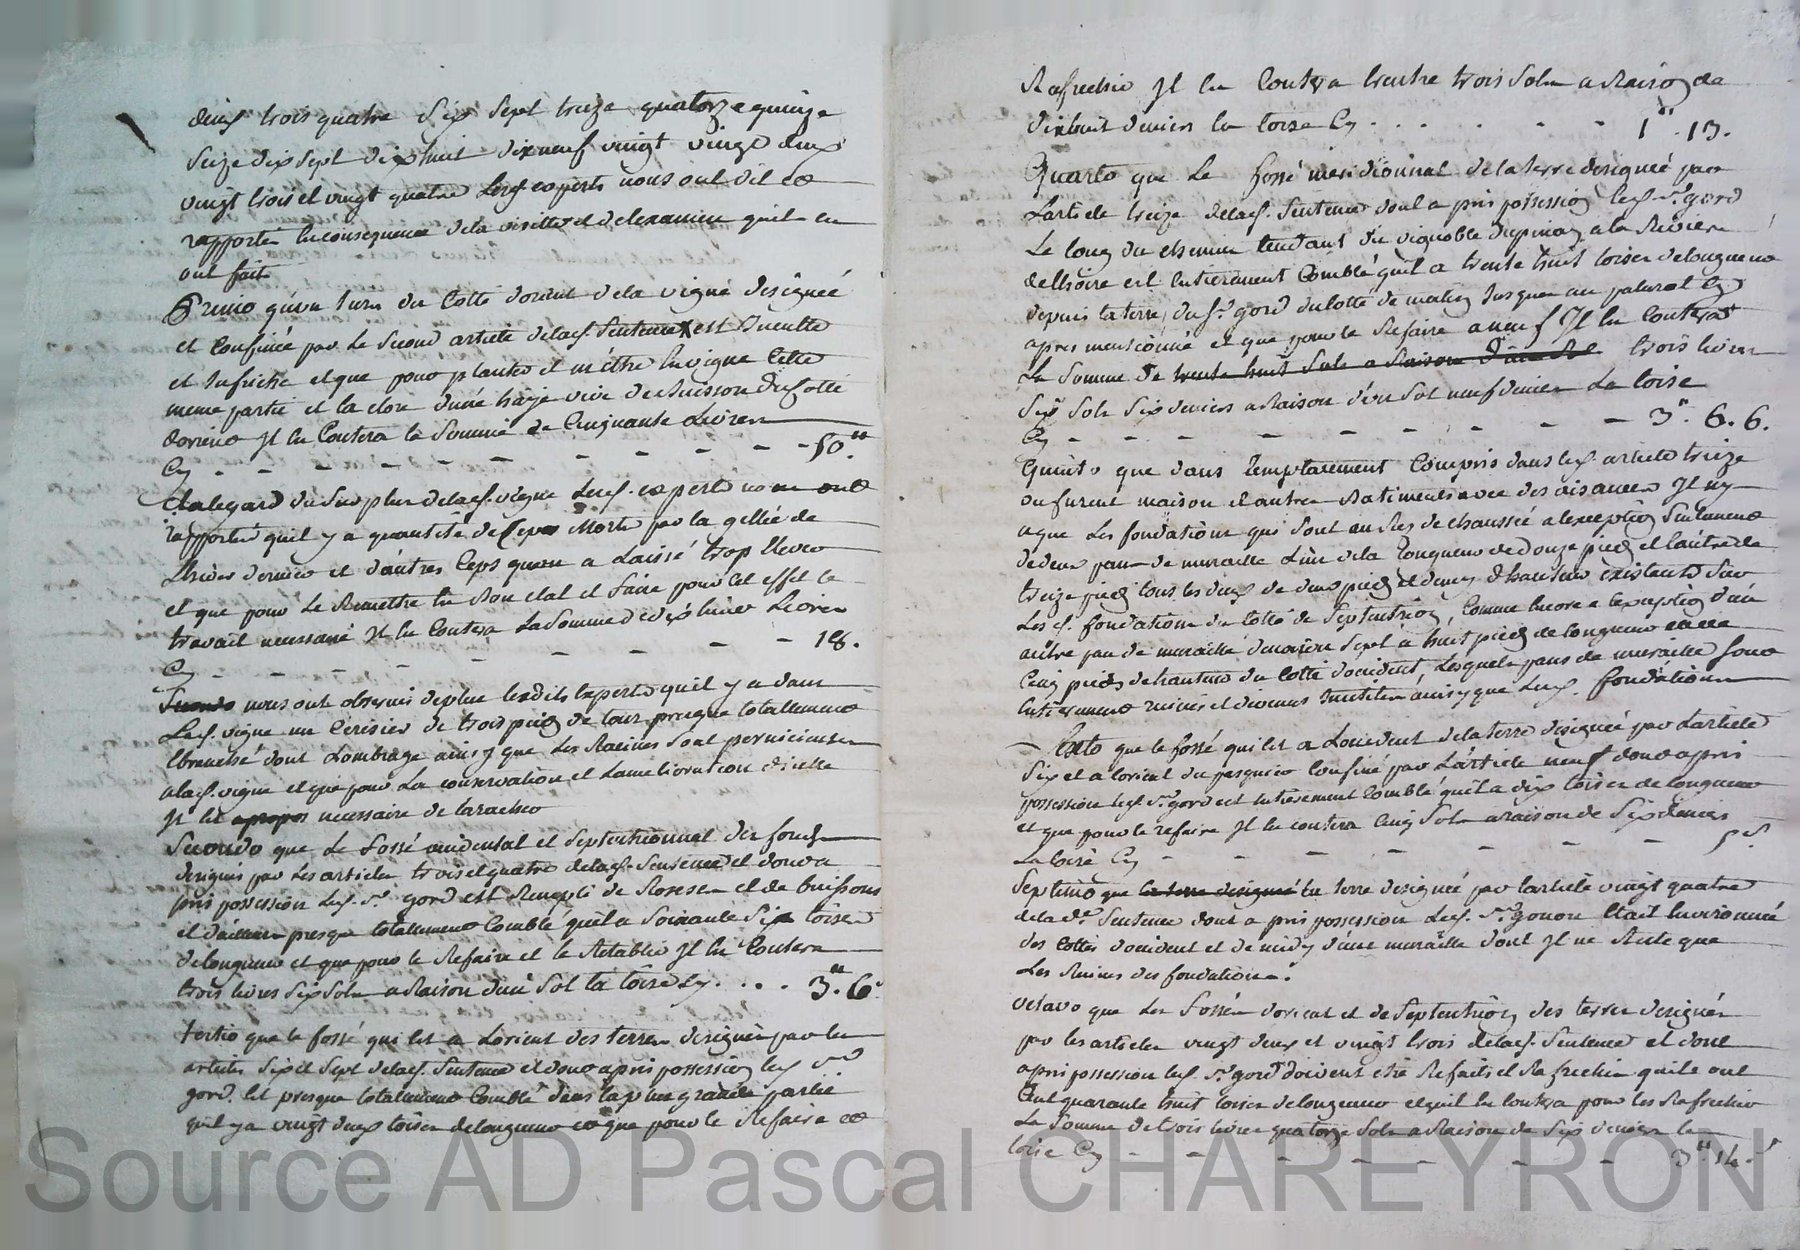 deux trois quatre Six Sept treize quatorze quinze
Seize dix Sept dix huit dix neuf vingt vingt deux
vingt trois et vingt quatre Lesd. experts nous ont dit et
rapporté en consequence de la visitte et de lexamen quils en
ont fait
Primo qu'un tiers du Cotté dorient de la vigne désignée
et Confinée par Le Second article delad. Sentence est Inculte
et Infriche et que pour planter et mettre en vigne Cette
meme partie et la clore d'une haye vive de Buisson du Cotté
dorient Il en Coutera la Somme de Cinquante Livres
Cy - - - - - - - - - 50.ʰ
Alegard du Surplus delad. vigne Lesd. experts nous ont
rapporté quil y a quantité de Ceps Morts par la gellée de
Lhiver dernier et d'autres Ceps quon a Laissé trop Elever
et que pour Le Remettre en Bon etat et faire pour cet effet le
travail necessaire Il en Coutera La Somme de dix huit Livres
Cy - - - - - - - 18.
Secondo nous ont observé de plus lesdits Experts quil y a dans
Lad. vigne un Cerisier de trois pieds de tour presque totallement
Ebranché dont Lombrage ainsy que Les Racines Sont pernicieuses
alad. vigne et que pour La conservation et Lamelioration dicelle
Il est apropos necessaire de larracher
Secondo que Le Fossé occidental et Septentrionnal des fonds
designés par Les articles trois et quatre delad. Sentence et dont a
pris possession Led. Sr. gord est Rempli de Ronses et de buissons
et d'ailleurs presque totallement Comblé quil a Soixante Six toises
de longueur et que pour le Refaire et le Retablir Il en Coutera
trois livres Six Sols a Raison d'un Sol la toise Cy . . . . 3.ʰ 6ˢ
tertio que le fossé qui est a Lorient des terres designées par les
articles Six et Sept delad. Sentence et dont a pris possession led. Sr.
gord. Est presque totallement Comblé dans la plus grande partie
quil y a vingt deux toises de longueur et que pour le Refaire et
Rafrechir Il en Coutera trentre trois Sols a Raison de
dixhuit deniers la toise Cy . . . . - - 1ʰ. 13.
Quarto que Le fossé meridionnal de la terre designée par
Larticle treize delad. Sentence dont a pris possession led. Sr. gord
Le long du chemin tendant du vignoble dupinay a la Riviere
de lhoire est Entierement Comblé quil a trente huit toises de longueur
depuis la terre du Sr. gord du Cotté de matin Jusques au
apres mentionné et que pour le Refaire a neuf Il en Coutera
La Somme de trente huit Sols a Raison d'un Sol trois livres
Six Sols Six deniers a Raison d'un Sol neuf deniers La toise
Cy - - - - - - - - 3ʰ. 6. 6.
Quinto que dans l'emplacement Compris dans led. article treize
ou furent maison et autres Batiments avec des aisances Il n'y
a que Les fondations qui Sont au Rez de chaussée a lexception Seulement
de deux pans de muraille L'un de la longueur de douze pieds et l'autre de
treize pieds tous les deux de deux pieds et demy d'hauteur existants Sur
Lesd. fondations du Cotté de Septentrion, Comme Encore a lexception d'un
autre pan de muraille Sept à huit pieds de longueur
Cinq pieds de hauteur du Cotté doccident, Lesquels pans de muraille Sont
Entierement ruinés et devenus Inutiles ainsy que Lesd. fondations
Sexto que le fossé qui est a Loccident de la terre designée par L'article
Six et a lorient du pasquier Confiné par L'article neuf dont a pris
possession led. Sr. gord est Entierement Comblé quil a dix toises de longueur
et que pour le refaire Il en coutera Cinq Sols a raison de Six deniers
La toise Cy - - - - - - - - 5ˢ.
Septimo que la terre designée la terre designée par larticle vingt quatre
de la de. Sentence dont a pris possession Led. Sr. gonon Etait Environnée
des Cottés doccident et de midy d'une muraille dont Il ne Reste que
Les Ruines des fondations.
octavo que Les Fossés dorient et de Septentrion des terres designées
par les articles vingt deux et vingt trois delad. Sentence et dont
a pris possession led. Sr. gord doivent etre Refaits et Rafrechis quils ont
Cent quarante huit toises de longueur et quil en coutera pour les Rafrechir
La Somme de trois livres quatorze Sols a Raison de Six deniers la
toise Cy - - - - - - - - 3ʰ. 14.ˢ
Source AD Pascal CHAREYRON